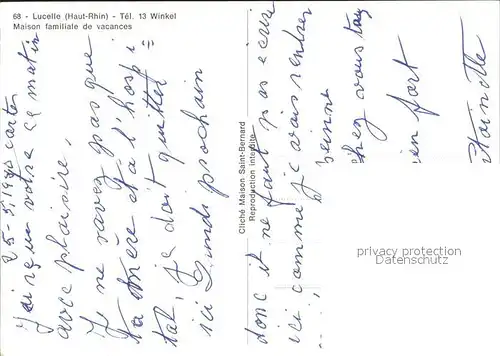 68 - Lucelle (Haut-Rhin) - Tél. 13 Winkel
Maison familiale de vacances
25-5.1970
J'ai reçu votre carte
ce matin
avec plaisir,
Je ne savez pas que
ta mère et a l'hospi
tal, Je doit quitter
ici lundi prochain
Cliché Maison Saint-Bernard
Reproduction interdite
donc il ne faut pas ecrire
ici comme je vais rentrer
chez vous
en fort
privacy protection watermark